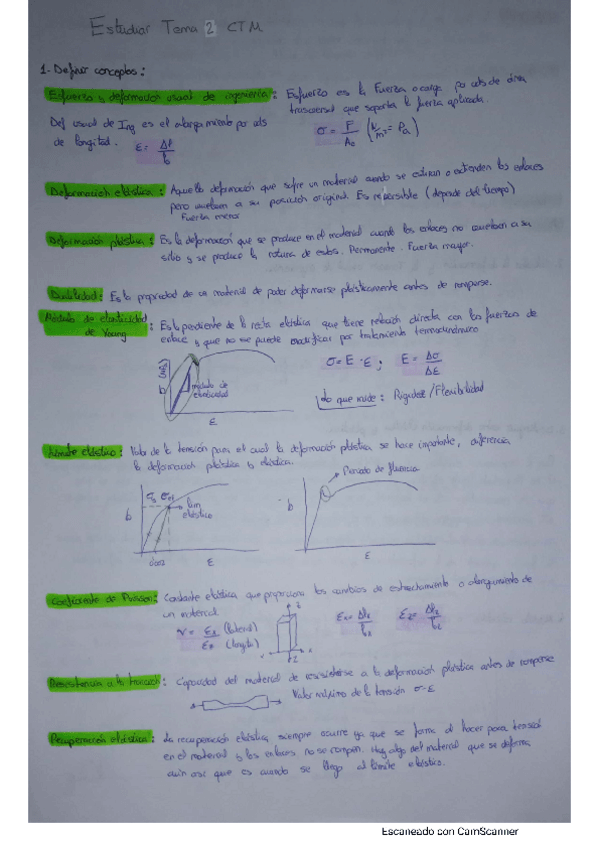 Estudiar Tema 2 CTM
1. Definir conceptos:
Esfuerzo y deformación usual de ingeniería: Esfuerzo es la Fuerza o carga por uds de área
trasversal que soporta la fuerza aplicada.
Def usual de Ing es el alargamiento por uds
de longitud. ε = Δl / l₀
σ = F / A₀ (N/m² = Pa)
Deformación elástica: Aquella deformación que sufre un material cuando se estiran o extienden los enlaces
pero vuelven a su posición original. Es reversible (depende del tiempo)
Fuerza menor
Deformación plástica: Es la deformación que se produce en el material cuando los enlaces no vuelven a su
sitio y se produce la rotura de estos. Permanente. Fuerza mayor.
Ductilidad: Es la propiedad de un material de poder deformarse plásticamente antes de romperse.
Módulo de elasticidad de Young: Es la pendiente de la recta elástica que tiene relación directa con las fuerzas de
enlace y que no se puede modificar por tratamiento termodinámico
σ = E · ε ; E = Δσ / Δε
módulo de
elasticidad
ε
Lo que mide: Rigidez / Flexibilidad
Límite elástico: Valor de la tensión para el cual la deformación plástica se hace importante, diferencia
la deformación plástica y elástica.
Periodo de fluencia
lím
elástico
σ
ε
σ
ε
Coeficiente de Poisson: Constante elástica que proporciona los cambios de estrechamiento o alargamiento de
un material.
ν = εx (lateral) / εz (longitu)
Resistencia a la tracción: Capacidad del material de resistirse a la deformación plástica antes de romperse
Valor máximo de la tensión σ-ε
Recuperación elástica: La recuperación elástica siempre ocurre ya que se forma al hacer tensión
en el material y los enlaces no se rompen. Hay algo del material que se deforma
aún así que es cuando se llega al límite elástico.
Escaneado con CamScanner